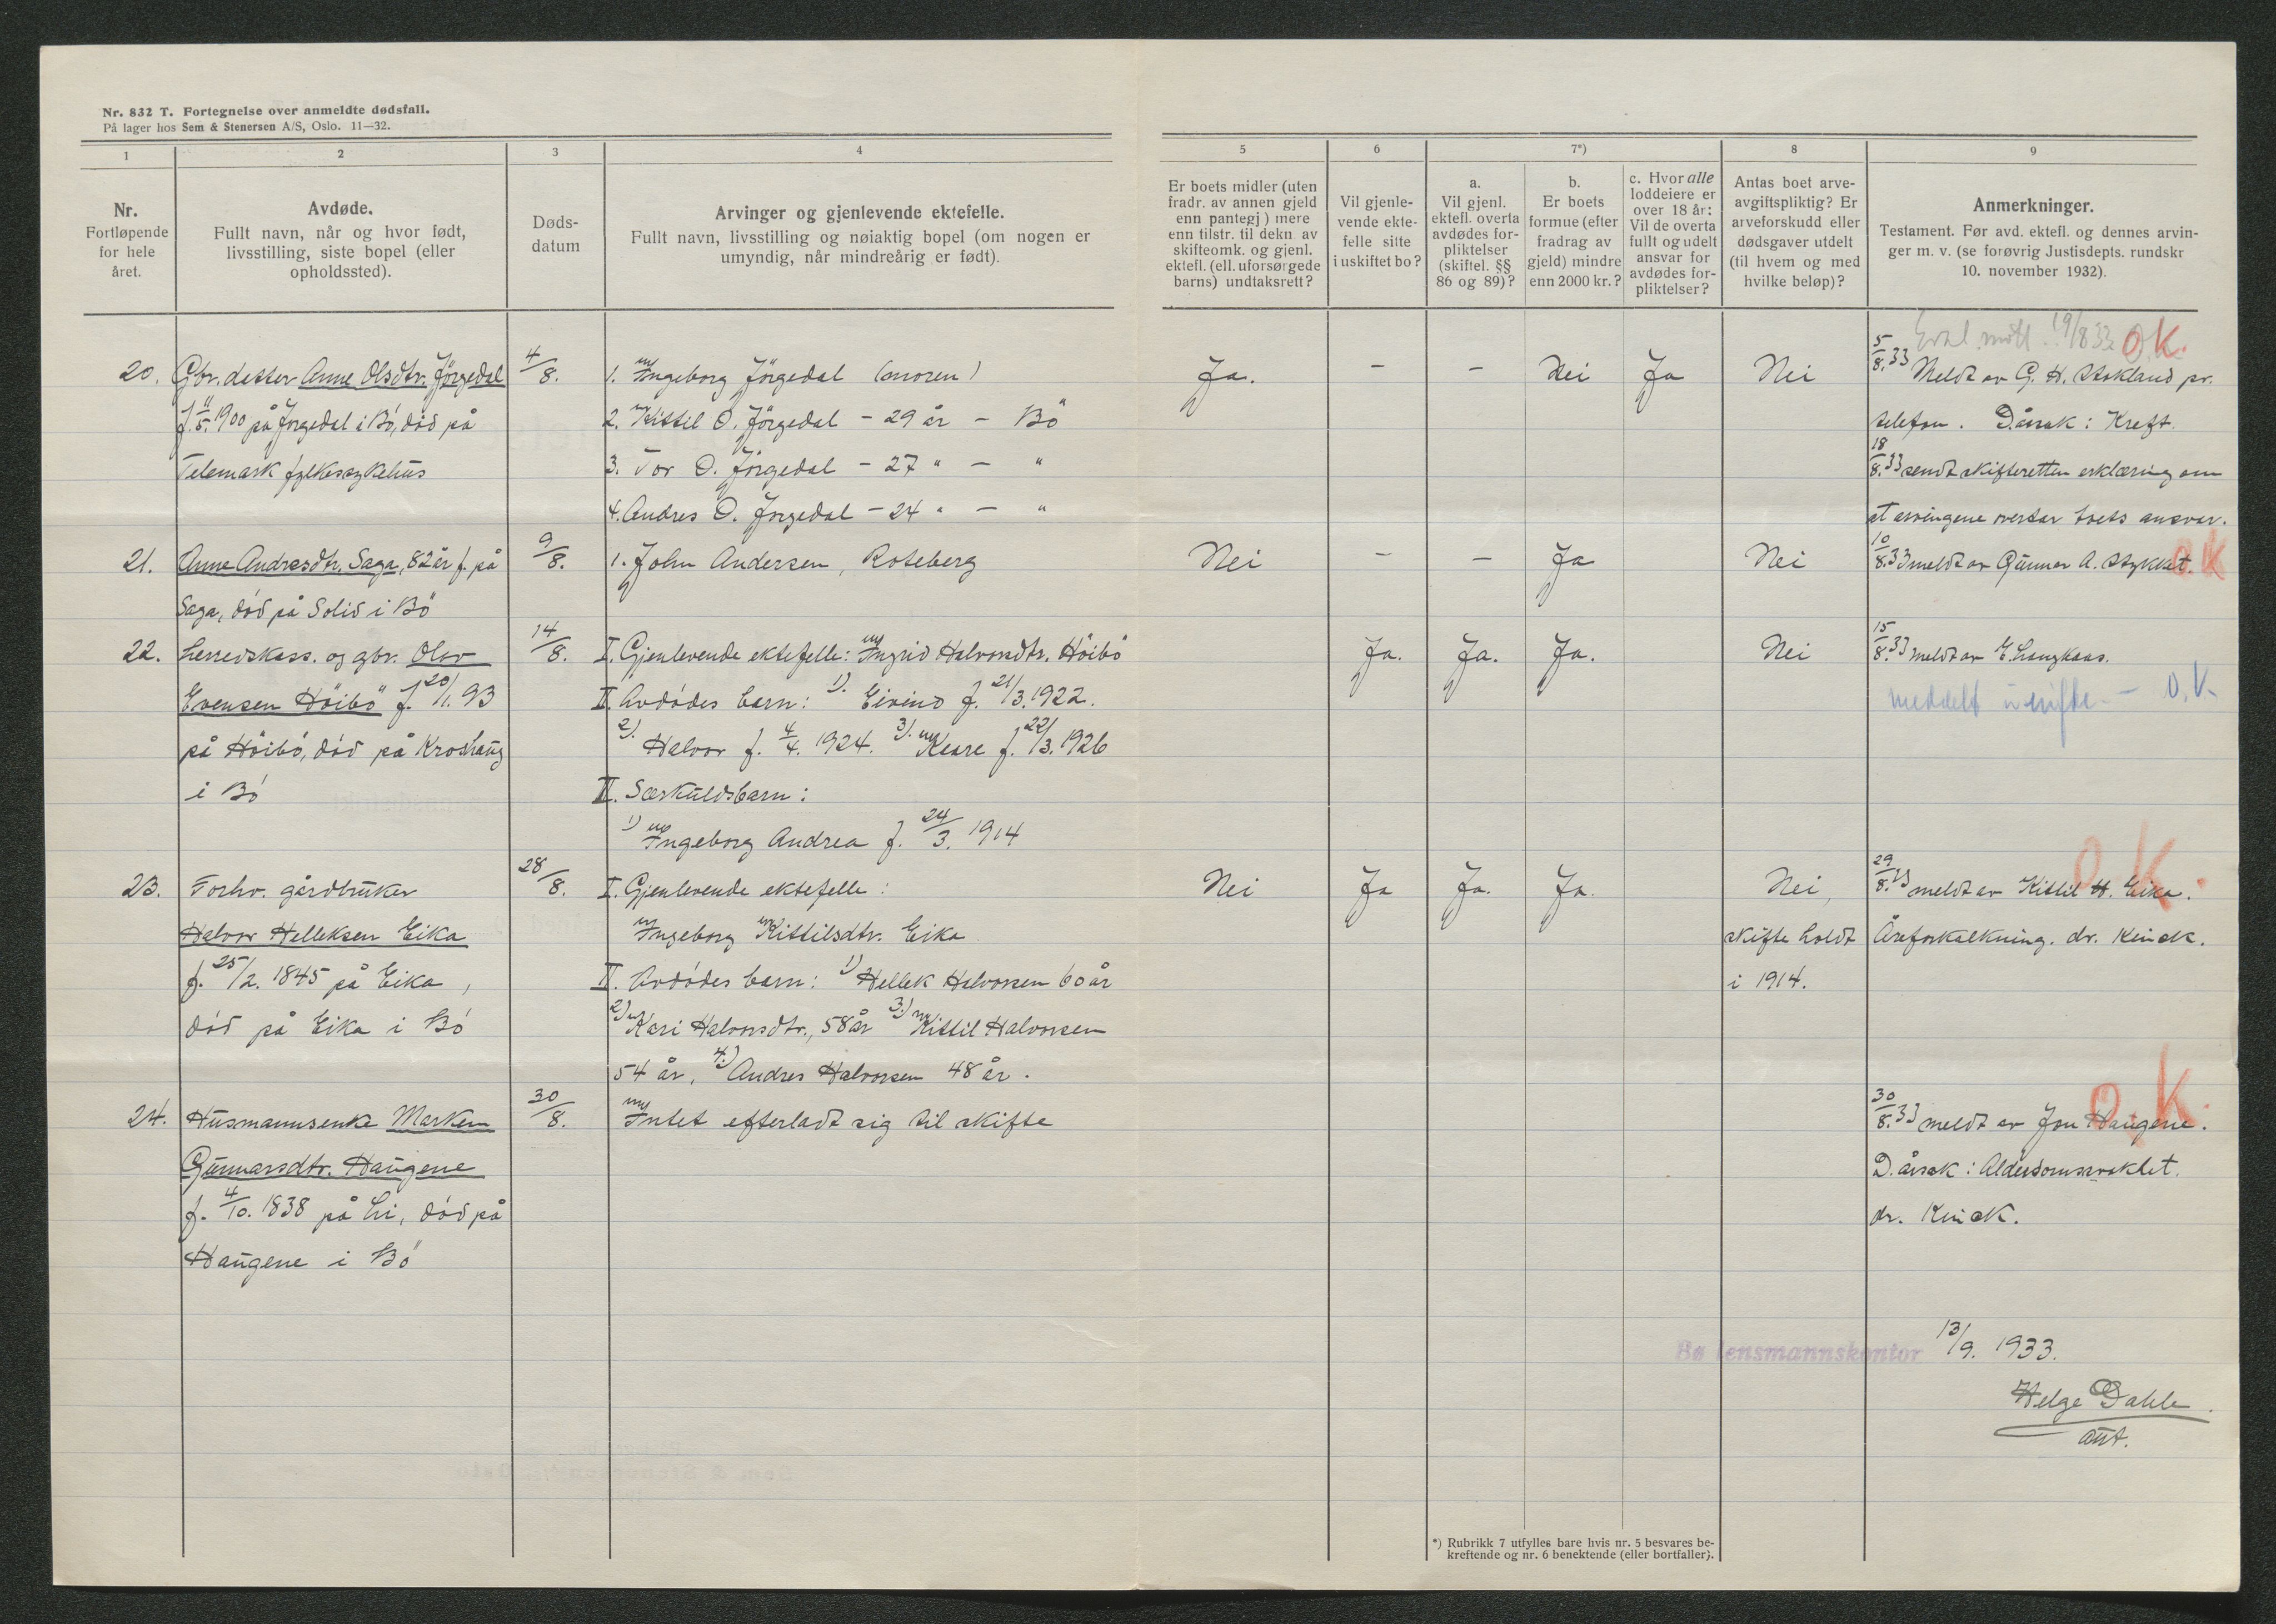 Nr. 832 T. Fortegnelse over anmeldte dødsfall.
På lager hos Sem & Stenersen A/S, Oslo. 11—32.
1
2
3
4
5
6
7*)
8
9
Nr.
Fortløpende
for hele
året.
Avdøde.
Fullt navn, når og hvor født,
livsstilling, siste bopel (eller
opholdssted).
Døds-
datum
Arvinger og gjenlevende ektefelle.
Fullt navn, livsstilling og nøiaktig bopel (om nogen er
umyndig, når mindreårig er født).
Er boets midler (uten
fradr. av annen gjeld
enn pantegj) mere
enn tilstr. til dekn. av
skifteomk. og gjenl.
ektefl. (ell. uforsørgede
barns) undtaksrett?
Vil gjenle-
vende ekte-
felle sitte
i uskiftet bo?
a.
Vil gjenl.
ektefl. overta
avdødes for-
pliktelser
(skiftel. §§
86 og 89)?
b.
Er boets
formue (efter
fradrag av
gjeld) mindre
enn 2000 kr.?
c. Hvor alle
loddeiere er
over 18 år:
Vil de overta
fullt og udelt
ansvar for
avdødes for-
pliktelser?
Antas boet arve-
avgiftspliktig? Er
arveforskudd eller
dødsgaver utdelt
(til hvem og med
hvilke beløp)?
Anmerkninger.
Testament. Før avd. ektefl. og dennes arvin-
ger m. v. (se forøvrig Justisdepts. rundskr
10. november 1932).
20. Gbr. datter Anne Olsdtr. Jörgedal
f. 11/5. 1900 på Jörgedal i Bö, död på
Telemark fylkessykehus
4/8.
1. Ingeborg Jörgedal (moren)
2. Kittil O. Jörgedal - 29 år - Bö
3. Tor O. Jörgedal - 27 " - "
4. Andres O. Jörgedal - 24 " - "
Ja. - - Nei Ja Nei
19/8 33 O.K.
5/8.33 Meldt av G. H. Stokland pr.
telefon. D.årsak: Kreft
18/8.33 sendt skifteretten erklæring om
at arvingene overtar boets ansvar.
21. Anne Andresdtr. Saga, 82 år f. på
Saga, död på Solid i Bö
9/8.
1. John Andersen, Roteberg
Nei - - Ja Nei
10/8.33 meldt av Gunnar A. Stykket. O.K
22. Herredskass. og gbr. Olav
Evensen Höibö f. 20/1. 93
på Höibö, död på Kroshaug
i Bö
14/8.
I. Gjenlevende ektefelle: Ingrid Halvorsdtr. Höibö
II. Avdödes barn: 1). Eivind f. 21/3. 1922.
2). Halvor f. 4/4. 1924. 3). Keare f. 22/3. 1926
III. Særkuldsbarn:
1) Ingeborg Andrea f. 24/3. 1914
Ja. Ja. Ja. Nei
15/8.33 meldt av E. Langkaas.
meddelt uskifte - O.K.
23. Forhv. gårdbruker
Halvor Helleksen Eika
f. 25/2. 1845 på Eika,
död på Eika i Bö
28/8.
I. Gjenlevende ektefelle:
Ingeborg Kittilsdtr. Eika
II. Avdödes barn: 1) Hellek Halvorsen 60 år
2) Kari Halvorsdtr., 58 år 3.) Kittil Halvorsen
54 år, 4.) Andres Halvorsen 48 år.
Nei Ja Ja. Ja. Nei,
skifte holdt
i 1914.
O.K.
29/8.33 meldt av Kittil H. Eika.
Åreforkalkning. dr. Kinck.
24. Husmannsenke Marken
Gunnarsdtr. Haugene
f. 4/10. 1838 på Li, död på
Haugene i Bö
30/8.
Intet efterladt sig til skifte
O.K.
30/8.33 meldt av Jon Haugene.
D.årsak: Alderdomssvakhet.
dr. Kinck.
Bø lensmannskontor 13/9. 1933.
Helge Dahle.
aut.
*) Rubrikk 7 utfylles bare hvis nr. 5 besvares be-
kreftende og nr. 6 benektende (eller bortfaller).